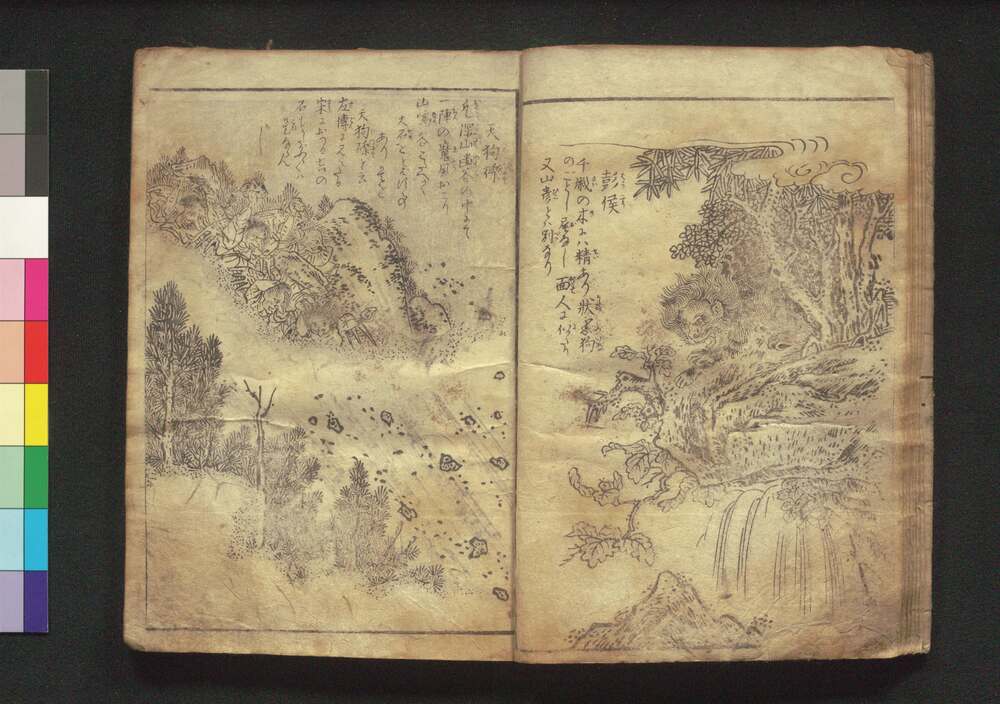 彭侯
千歳の木には精あり状黒狗
のごとし尾なし面人に似たり
又山彦とは別なり
天狗礫
凡深山幽谷の中にて
一陣の魔風おこり
山鳴谷こたへて
大石をとばす事
あり是を
天狗礫と云
左傳に見えたる
宋におつる七の
石も